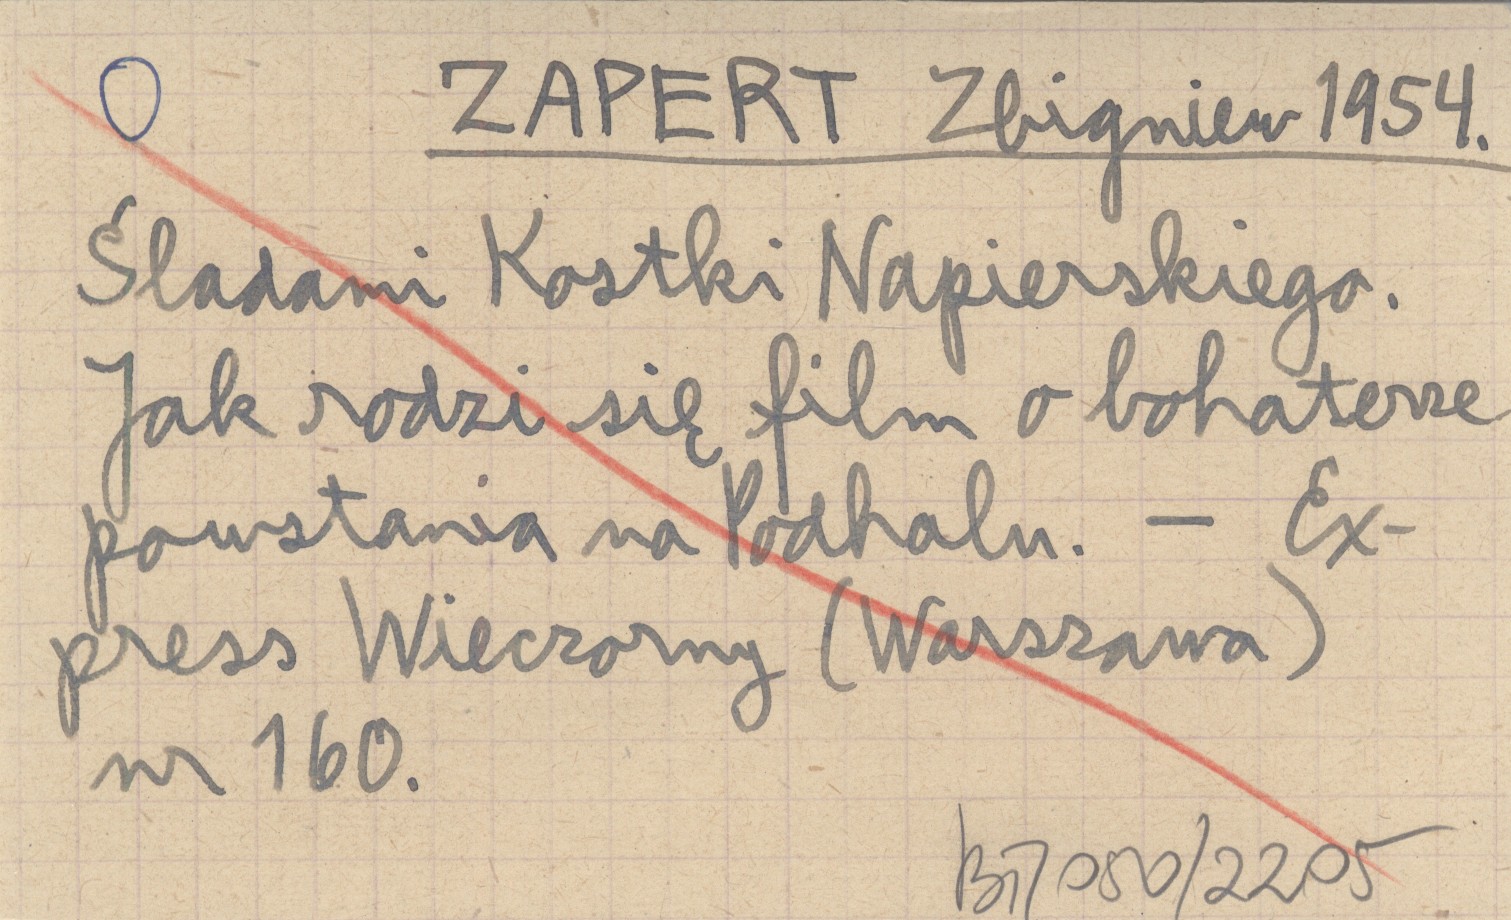 O ZAPERT Zbigniew 1954.
Śladami Kostki Napierskiego.
Jak rodzi się film o bohaterze
powstania na Podhalu. — Ex-
press Wieczorny (Warszawa)
nr 160.
050/2205